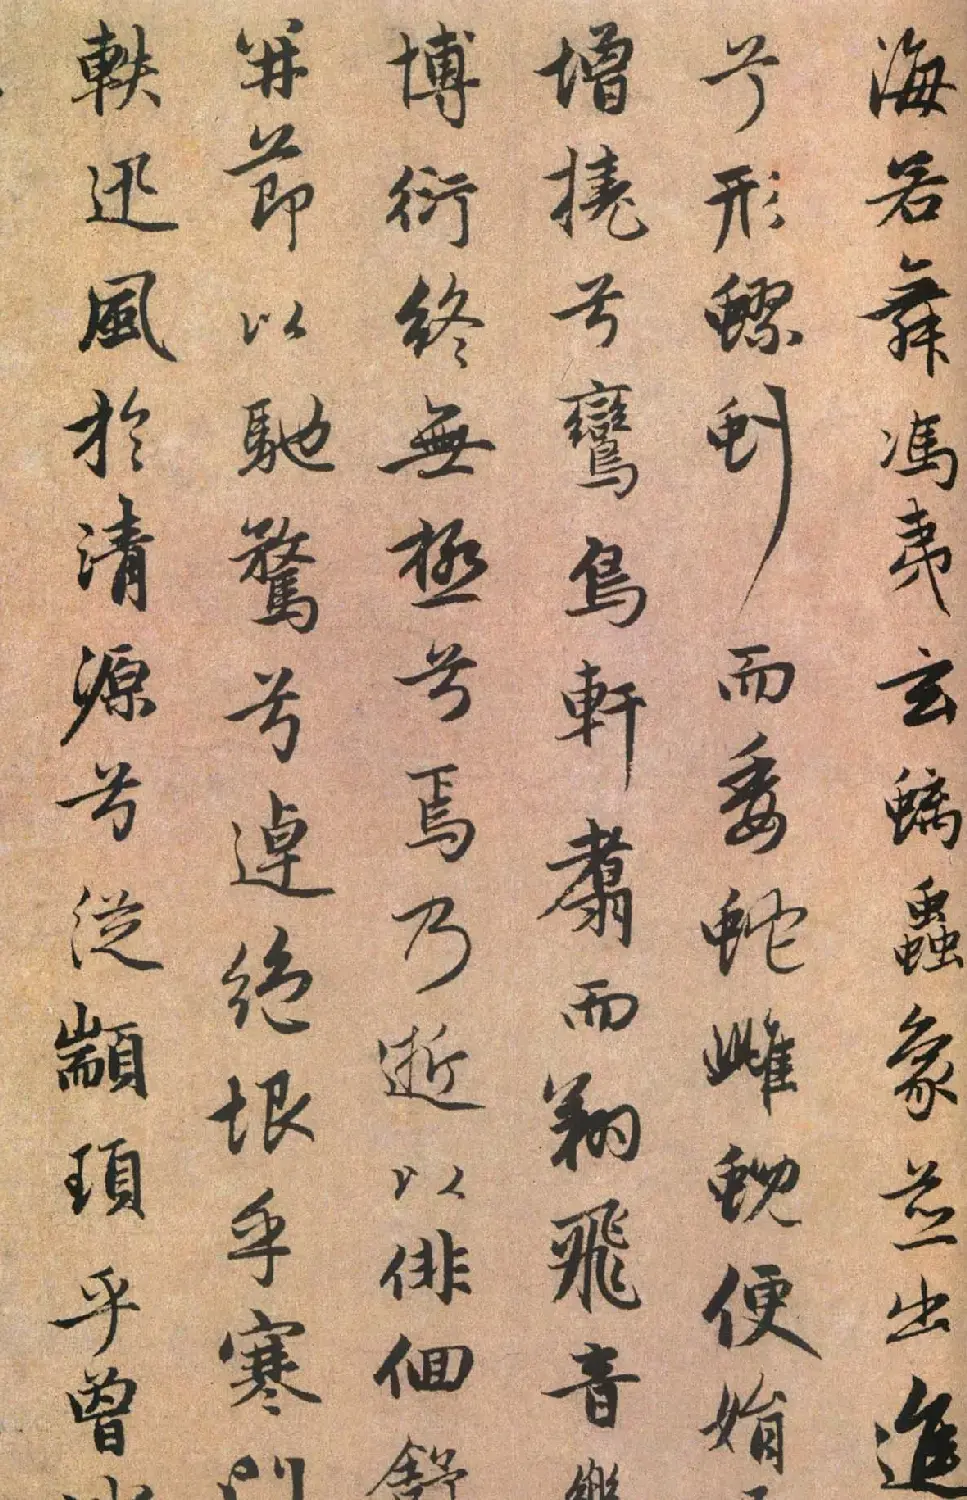 海若舞馮夷玄螭蟲象並出進
兮形蟉虯而委蛇雌蜺便娟
增撓兮鸞鳥軒翥而翔飛音樂
博衍終無極兮焉乃逝以俳佪舒
并節以馳騖兮逴絕垠乎寒門
軼迅風於清源兮從顓頊乎曾